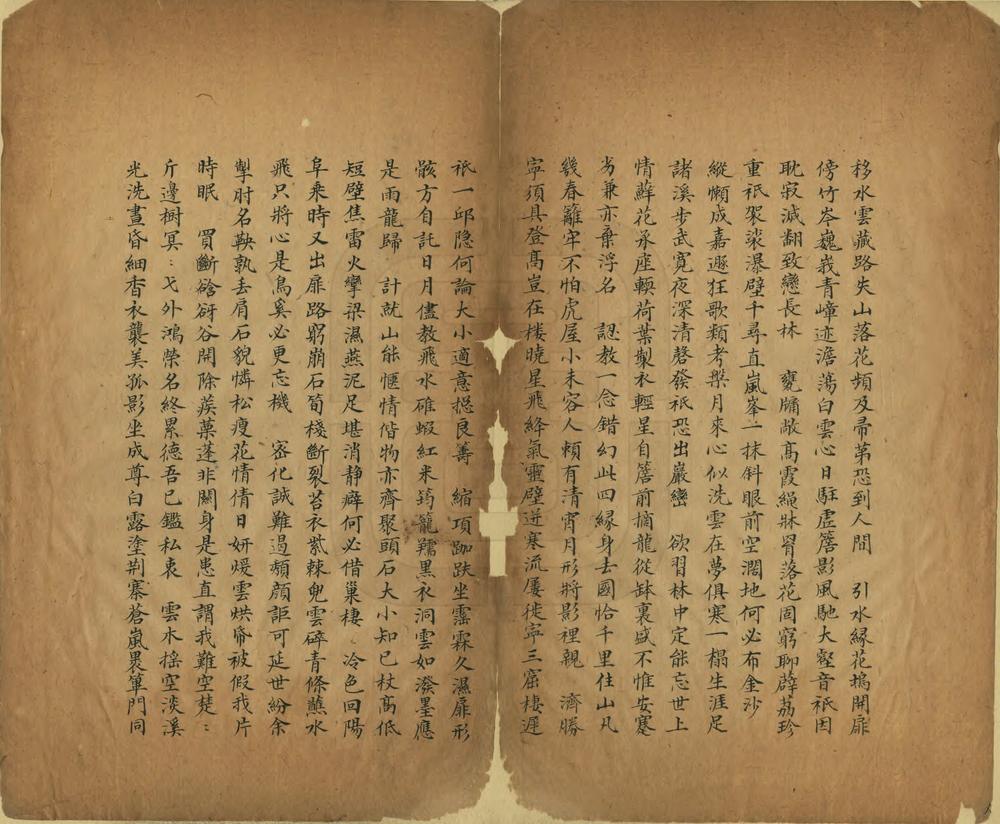 移水雲藏路失山落花頻及帚苐恐到人間　引水緣花塢開扉
傍竹岑巍峩青嶂迹澹蕩白雲心日駐虛簷影風馳大壑音祇因
耽寂滅翻致戀長林　甕牖敞高霞繩牀罥落花固窮聊薜荔珍
重祇袈裟瀑壁千尋直嵐峯一抹斜眼前空濶地何必布金沙
縱懶成嘉遯狂歌類考槃月來心似洗雲在夢俱寒一榻生涯足
諸溪步武寬夜深清磬發祇恐出巖巒　欲習林中定能忘世上
情蘚花承座輭荷葉製衣輕星自簷前摘龍從缽裏盛不惟安蹇
劣兼亦棄浮名　認教一念錯幻此四緣身去國恰千里住山凡
幾春籬牢不怕虎屋小未容人頼有清宵月形將影裡親　濟勝
寧須具登髙豈在楼曉星飛絳氣靈壁迸寒流屢徙寧三窟棲遲
祇一邱隐何論大小適意揔良籌　縮項跏趺坐霪霖久濕扉形
骸方自託日月儘教飛水碓蝦紅米筠籠糯黒衣洞雲如潑墨應
是雨龍歸　計就山能愜情偕物亦齊聚頭石大小知已杖髙低
短壁焦雷火孿梁濕燕泥足堪消静癖何必借巢棲　冷色回陽
阜乘時又出扉路窮崩石筍棧斷裂苔衣紫棘兜雲碎青條蘸水
飛只將心是鳥奚必更忘機　宻化誠難過頽顔詎可延世紛余
掣肘名鞅孰去肩石貌憐松瘦花情倩日妍煖雲烘帋被假我片
時眠　買斷谽谺谷開除蒺菓蓬非關身是患直謂我難空楚〻
斤邊樹冥〻弋外鴻榮名終累德吾已鑑私衷　雲木摇空淡溪
光洗晝昏細香衣襲美孤影坐成尊白露塗荆寨蒼嵐褁篳門同